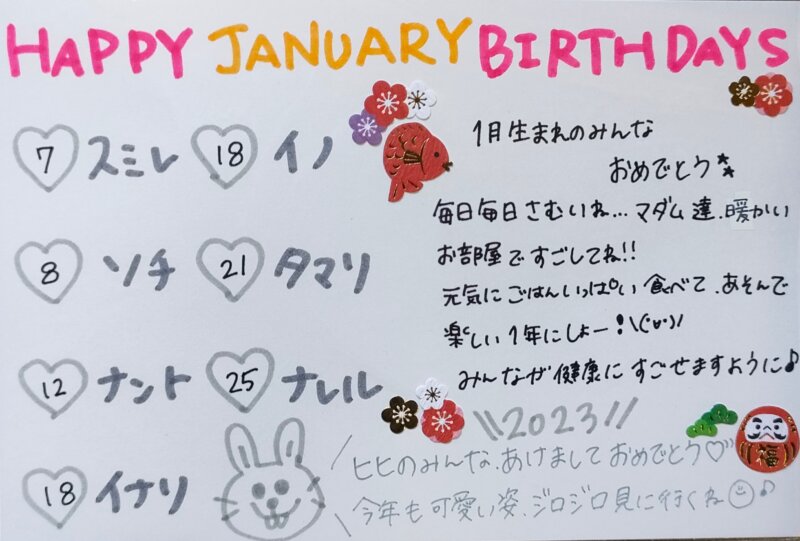 HAPPY JANUARY BIRTHDAYS
7 スミレ
18 イノ
8 ソチ
21 タマリ
12 ナント
25 ナレル
18 イナリ
1月生まれのみんな
おめでとう**
毎日毎日さむいね…マダム達、暖かい
お部屋ですごしてね!!
元気にごはんいっぱい食べて、あそんで
楽しい1年にしよー!\(ˊᵕˋ)/
みんなが健康にすごせますように♪
\\2023//
ヒヒのみんな、あけましておめでとう♡
今年も可愛い姿、ジロジロ見に行くね☺♪
福